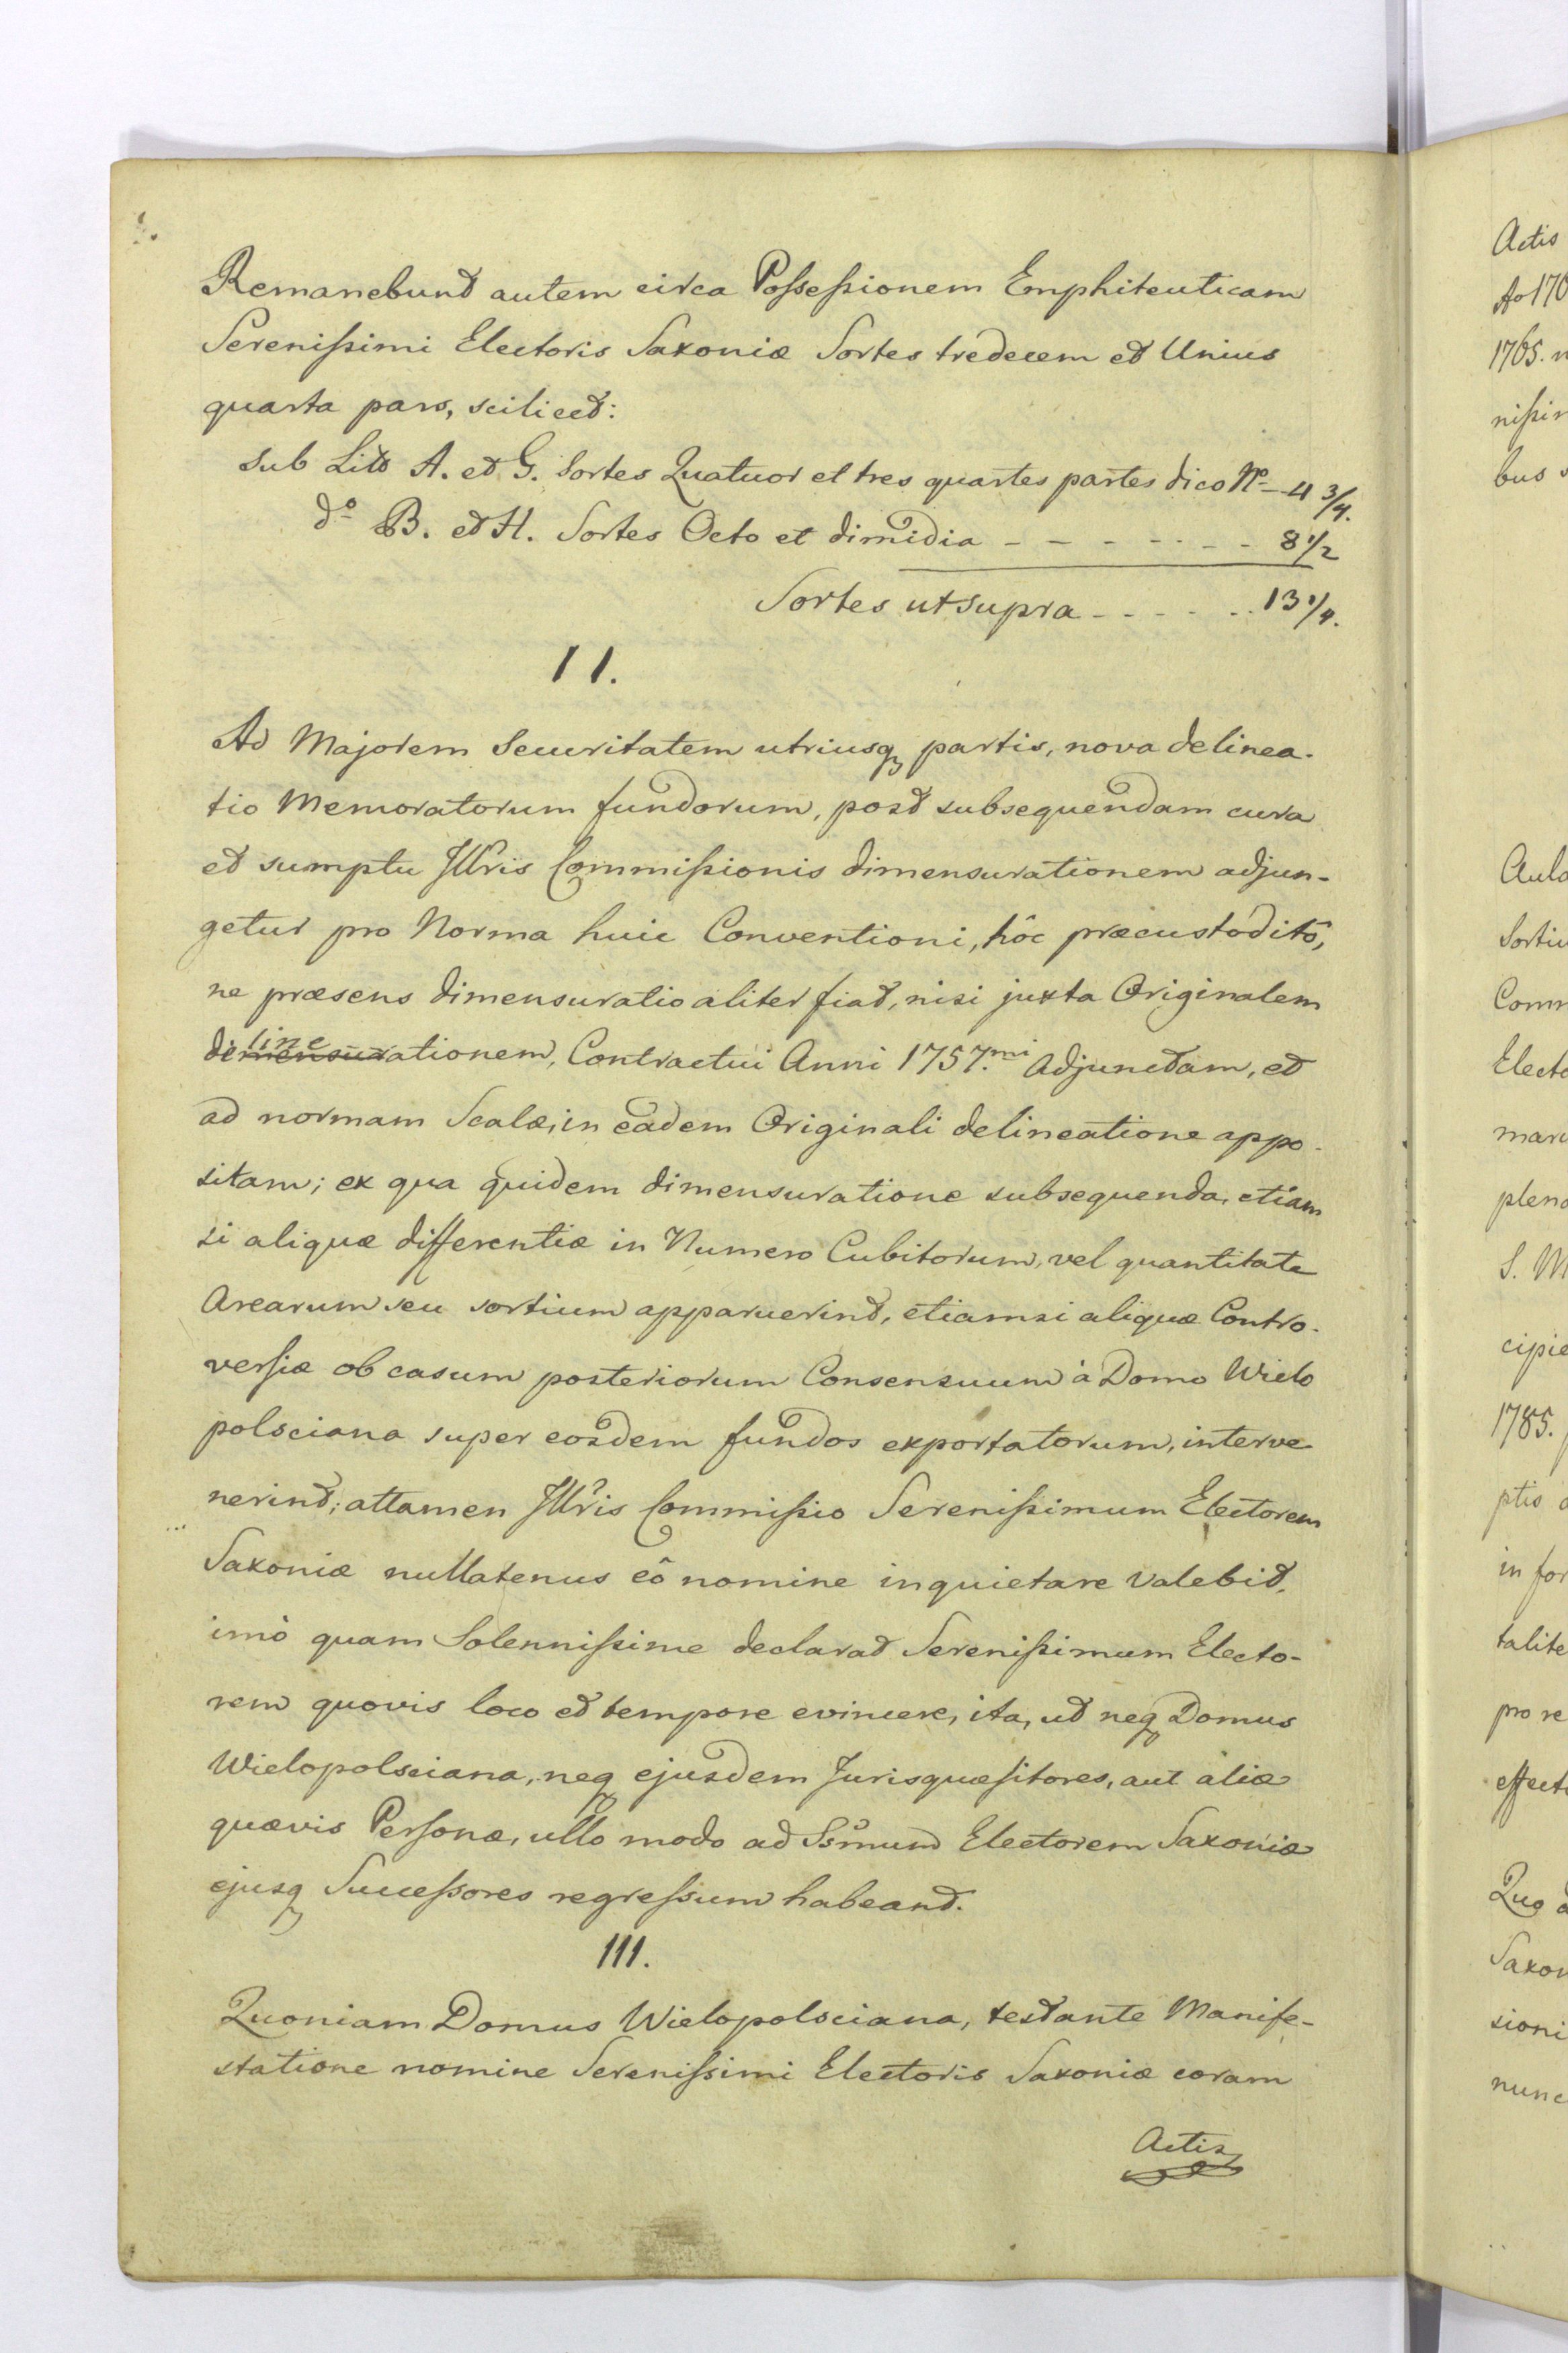 Remanebunt autem circa Possessionem Emphiteuticam
Serenissimi Electoris Saxoniæ Sortes tredecem et Unius
quarta pars, scilicet:
Sub Litt A. et G. Sortes Quatuor et tres quartes partes dico No - 4 3/4.
do B. et H. Sortes Octo et dimidia - - - - - - - 8 1/2
Sortes ut supra - - - - - - 13 1/4.
II.
Ad Majorem Securitatem utriusq partis, nova delinea-
tio Memoratorum fundorum, post subsequendam cura
et sumptu Jllris Commissionis dimensurationem adjun-
getur pro Norma huic Conventioni, hôc præcustoditô,
ne præsens dimensuratio aliter fiat, nisi juxta Originalem
delineationem, Contractui Anni 1757.mi Adjunctam, et
ad normam Scalæ, in eadem Originali delineatione appo-
sitam; ex qua quidem dimensuratione subsequenda, etiam
si aliquæ differentiæ in Numero Cubitorum, vel quantitate
Arearum seu sortium apparuerint, etiamsi aliquæ Contro-
versiæ ob casum posteriorum Consensuum à Domo Wielo
polsciana super eosdem fundos exportatorum, interve-
nerint; attamen Jllris Commissio Serenissimum Electorem
Saxoniæ nullatenus eô nomine inquietare valebit,
imò quam Solennissime declarat Serenissimum Electo-
rem quovis loco et tempore evincere, ita, ut neq Domus
Wielopolsciana, neq ejusdem Jurisquæsitores, aut aliæ
quævis Personæ, ullo modo ad Ssmum Electorem Saxoniæ
ejusq Successores regressum habeant.
III.
Quoniam Domus Wielopolsciana, testante Manife-
statione nomine Serenissimi Electoris Saxoniæ coram
Actis
Actis
Ao 170
1765. n
nissim
bus s
Aula
Sortiu
Comm
Electo
mare
plena
S. M
cipie
1785.
ptis
in for
talite
pro re
effect
Quo
Saxon
sioni
nunc